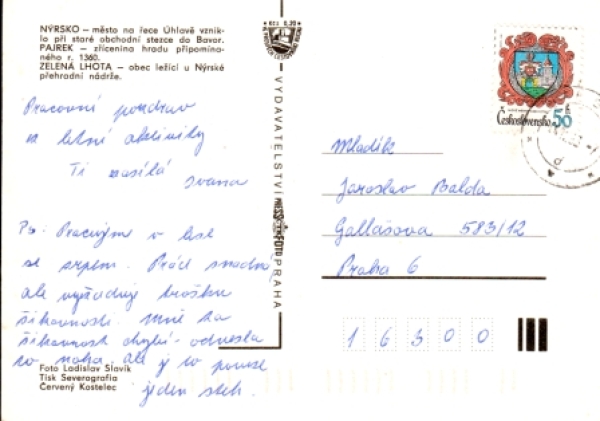 NÝRSKO – město na řece Úhlavě vznik-
lo při staré obchodní stezce do Bavor.
PAJREK – zřícenina hradu připomína-
ného r. 1360.
ZELENÁ LHOTA – obec ležící u Nýrské
přehradní nádrže.
Pracovní pozdrav
z letní aktivity
Ti zasílá
Ivana
PS: Pracujeme v lese
se srpem. Práce snadná,
ale vyžaduje trošku
šikovnosti. Mně ta
šikovnost chybí - odnesla
to noha. Ale je to pouze
jeden steh.
Foto Ladislav Slavík
Tisk Severografia
Červený Kostelec
VYDAVATELSTVÍ PRESSFOTO PRAHA
Československo
50 h
Mladík
Jaroslav Balda
Gallašova 583/12
Praha 6
16300